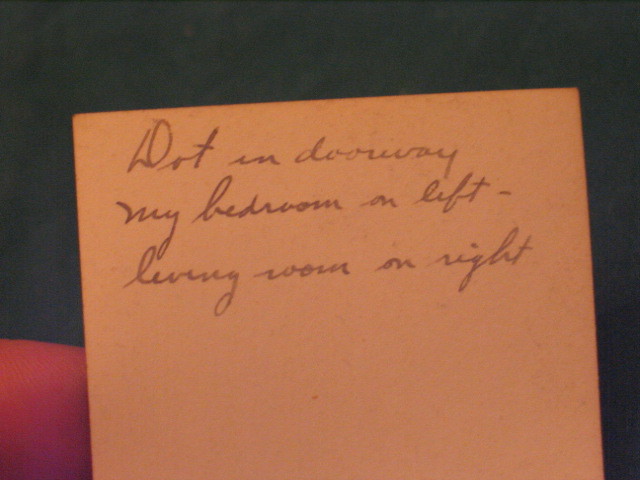 Dot in doorway
my bedroom on left -
living room on right